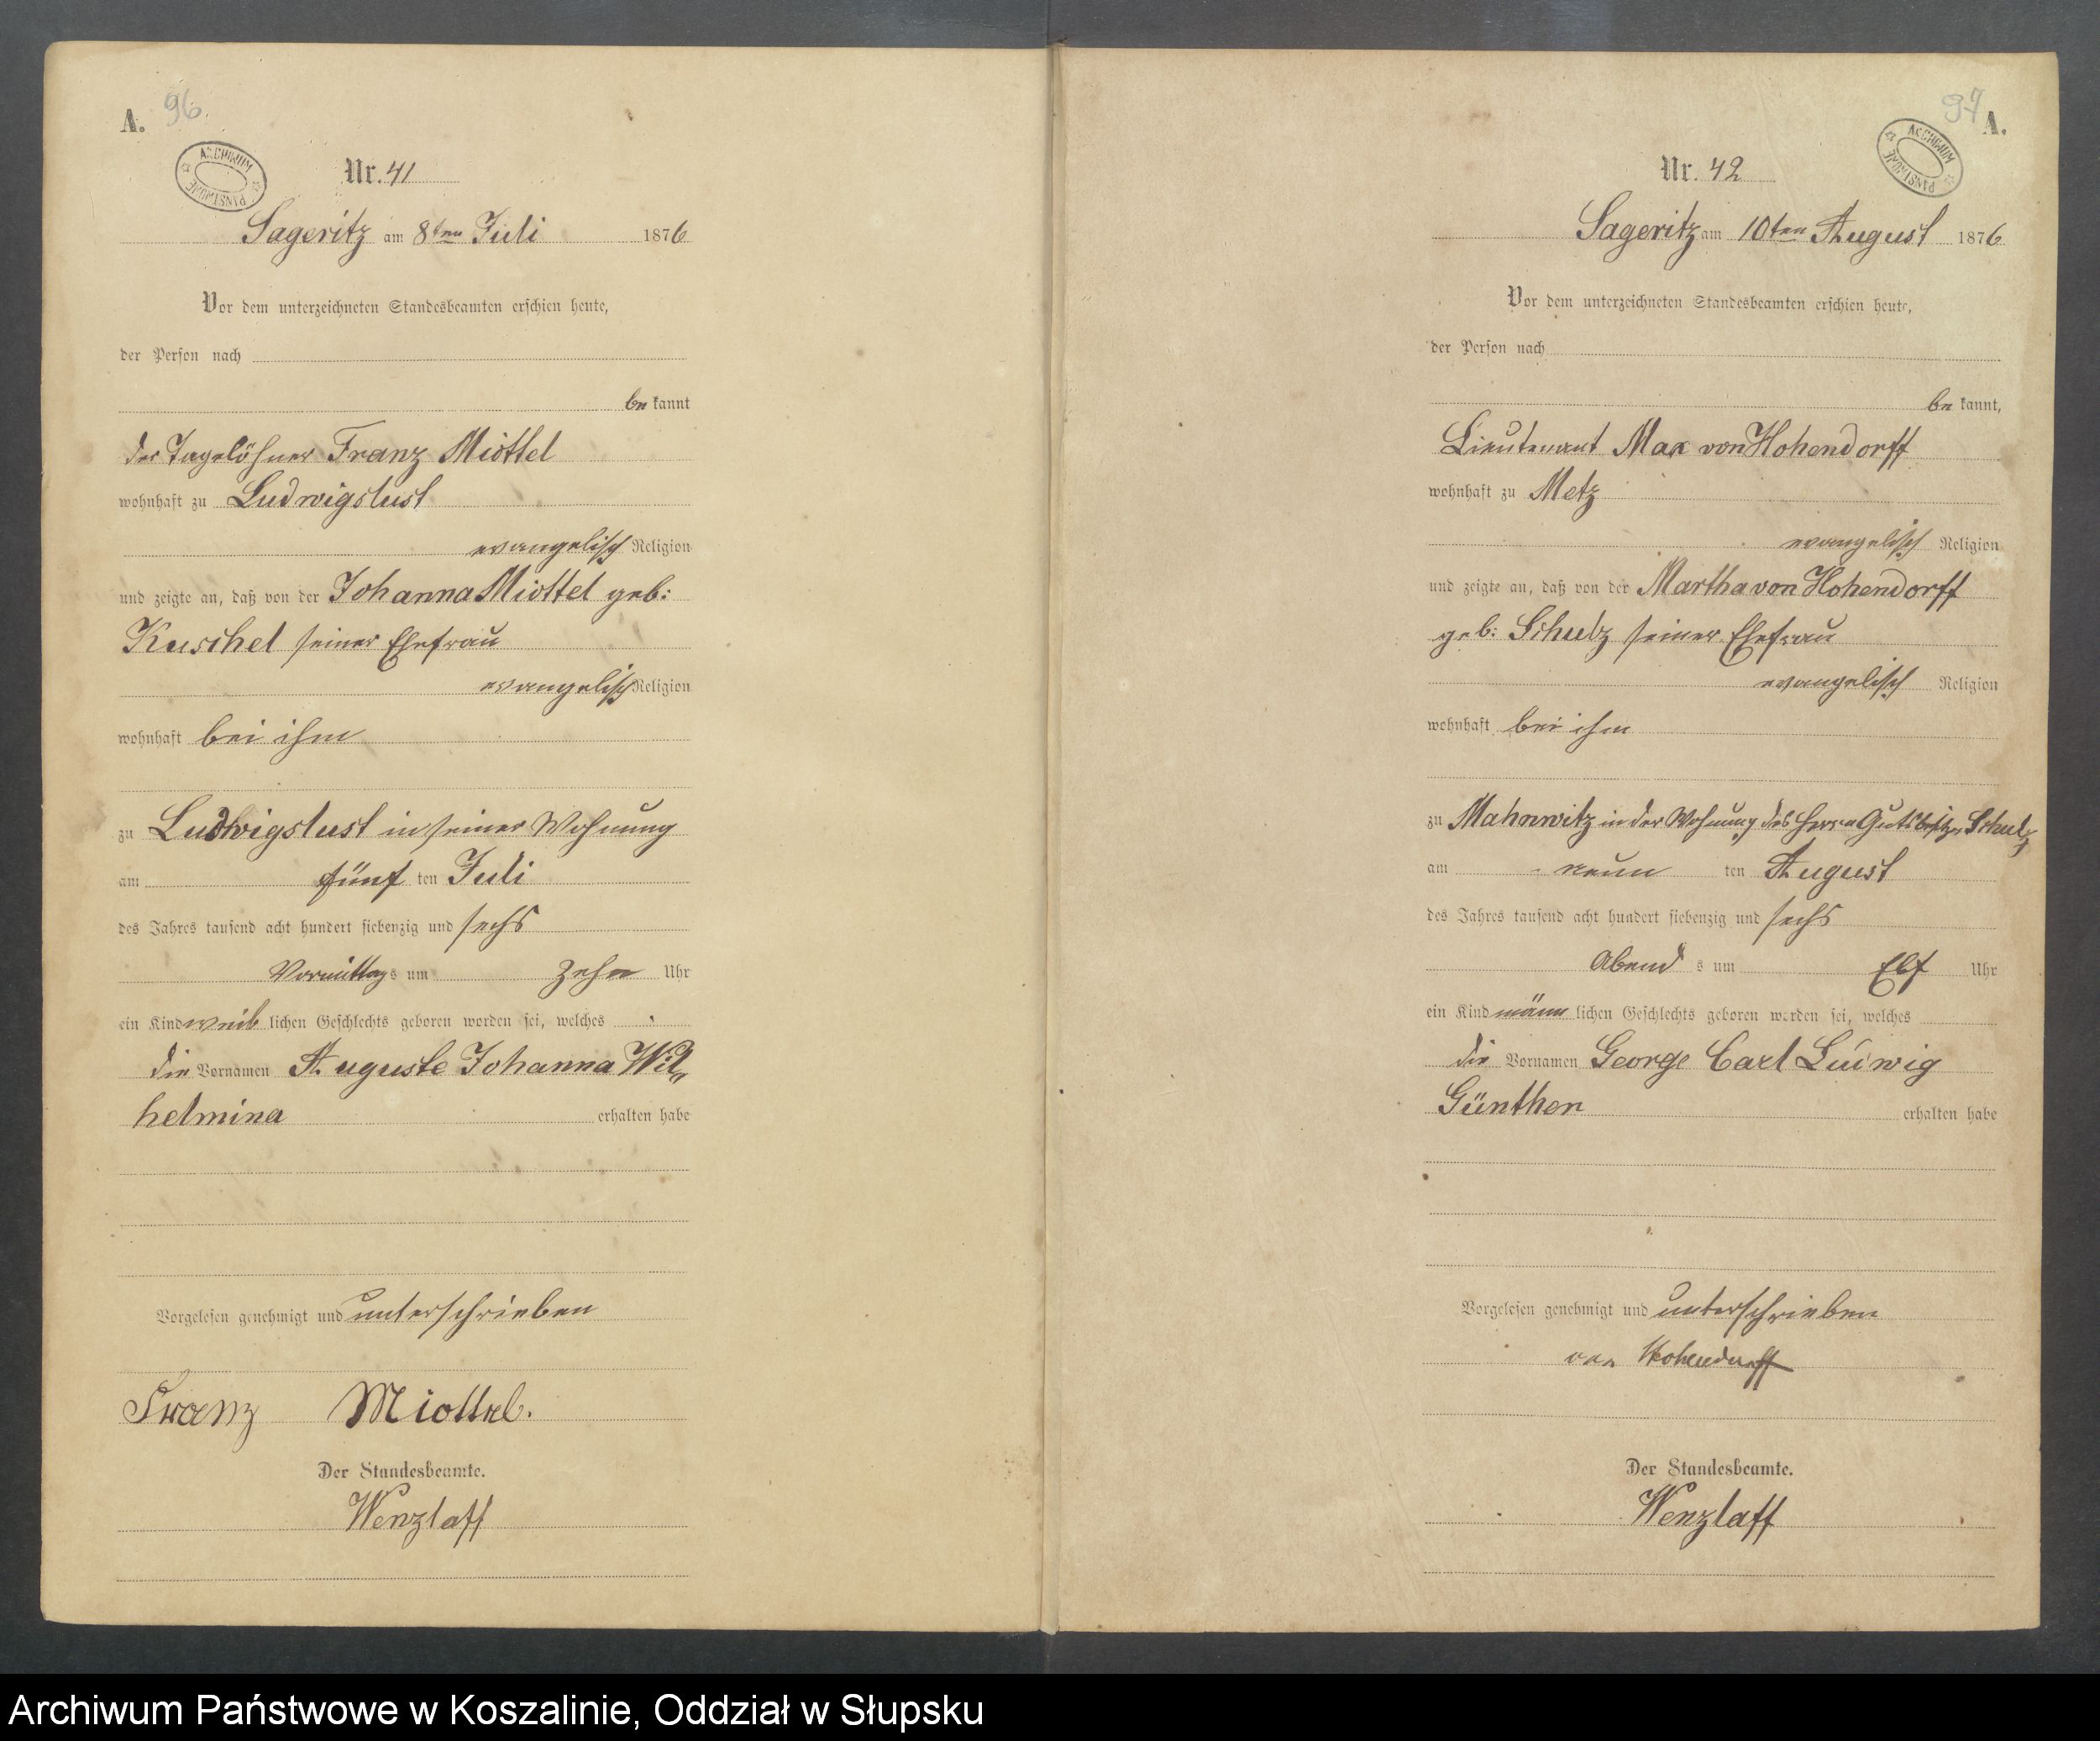 A. 96.
ARCHIWUM PAŃSTWOWE
Nr. 41
Sageritz am 8ten Juli 1876
Vor dem unterzeichneten Standesbeamten erschien heute,
der Person nach
be kannt
der Tagelöhner Franz Miottel
wohnhaft zu Ludwigslust
evangelisch Religion
und zeigte an, daß von der Johanna Miottel geb:
Kuschel seiner Ehefrau
evangelisch Religion
wohnhaft bei ihm
zu Ludwigslust in seiner Wohnung
am fünf ten Juli
des Jahres tausend acht hundert siebenzig und sechs
Vormittags um zehn Uhr
ein Kind weib lichen Geschlechts geboren worden sei, welches
die Vornamen Auguste Johanna Wil„
helmina erhalten habe
Vorgelesen genehmigt und unterschrieben
Franz Miottel.
Der Standesbeamte.
Wenzlaff
97 A.
ARCHIWUM PAŃSTWOWE
Nr. 42
Sageritz am 10ten August 1876
Vor dem unterzeichneten Standesbeamten erschien heute,
der Person nach
be kannt,
Lieutenant Max von Hohendorff
wohnhaft zu Metz
evangelisch Religion
und zeigte an, daß von der Martha von Hohendorff
geb: Schulz seiner Ehefrau
evangelisch Religion
wohnhaft bei ihm
zu Mahnwitz in der Wohnung des Herrn Gutsbesitzer Schulz
am neun ten August
des Jahres tausend acht hundert siebenzig und sechs
Abend s um Elf Uhr
ein Kind männ lichen Geschlechts geboren worden sei, welches
die Vornamen George Carl Ludwig
Günther erhalten habe
Vorgelesen genehmigt und unterschrieben
von Hohendorff
Der Standesbeamte.
Wenzlaff
Archiwum Państwowe w Koszalinie, Oddział w Słupsku